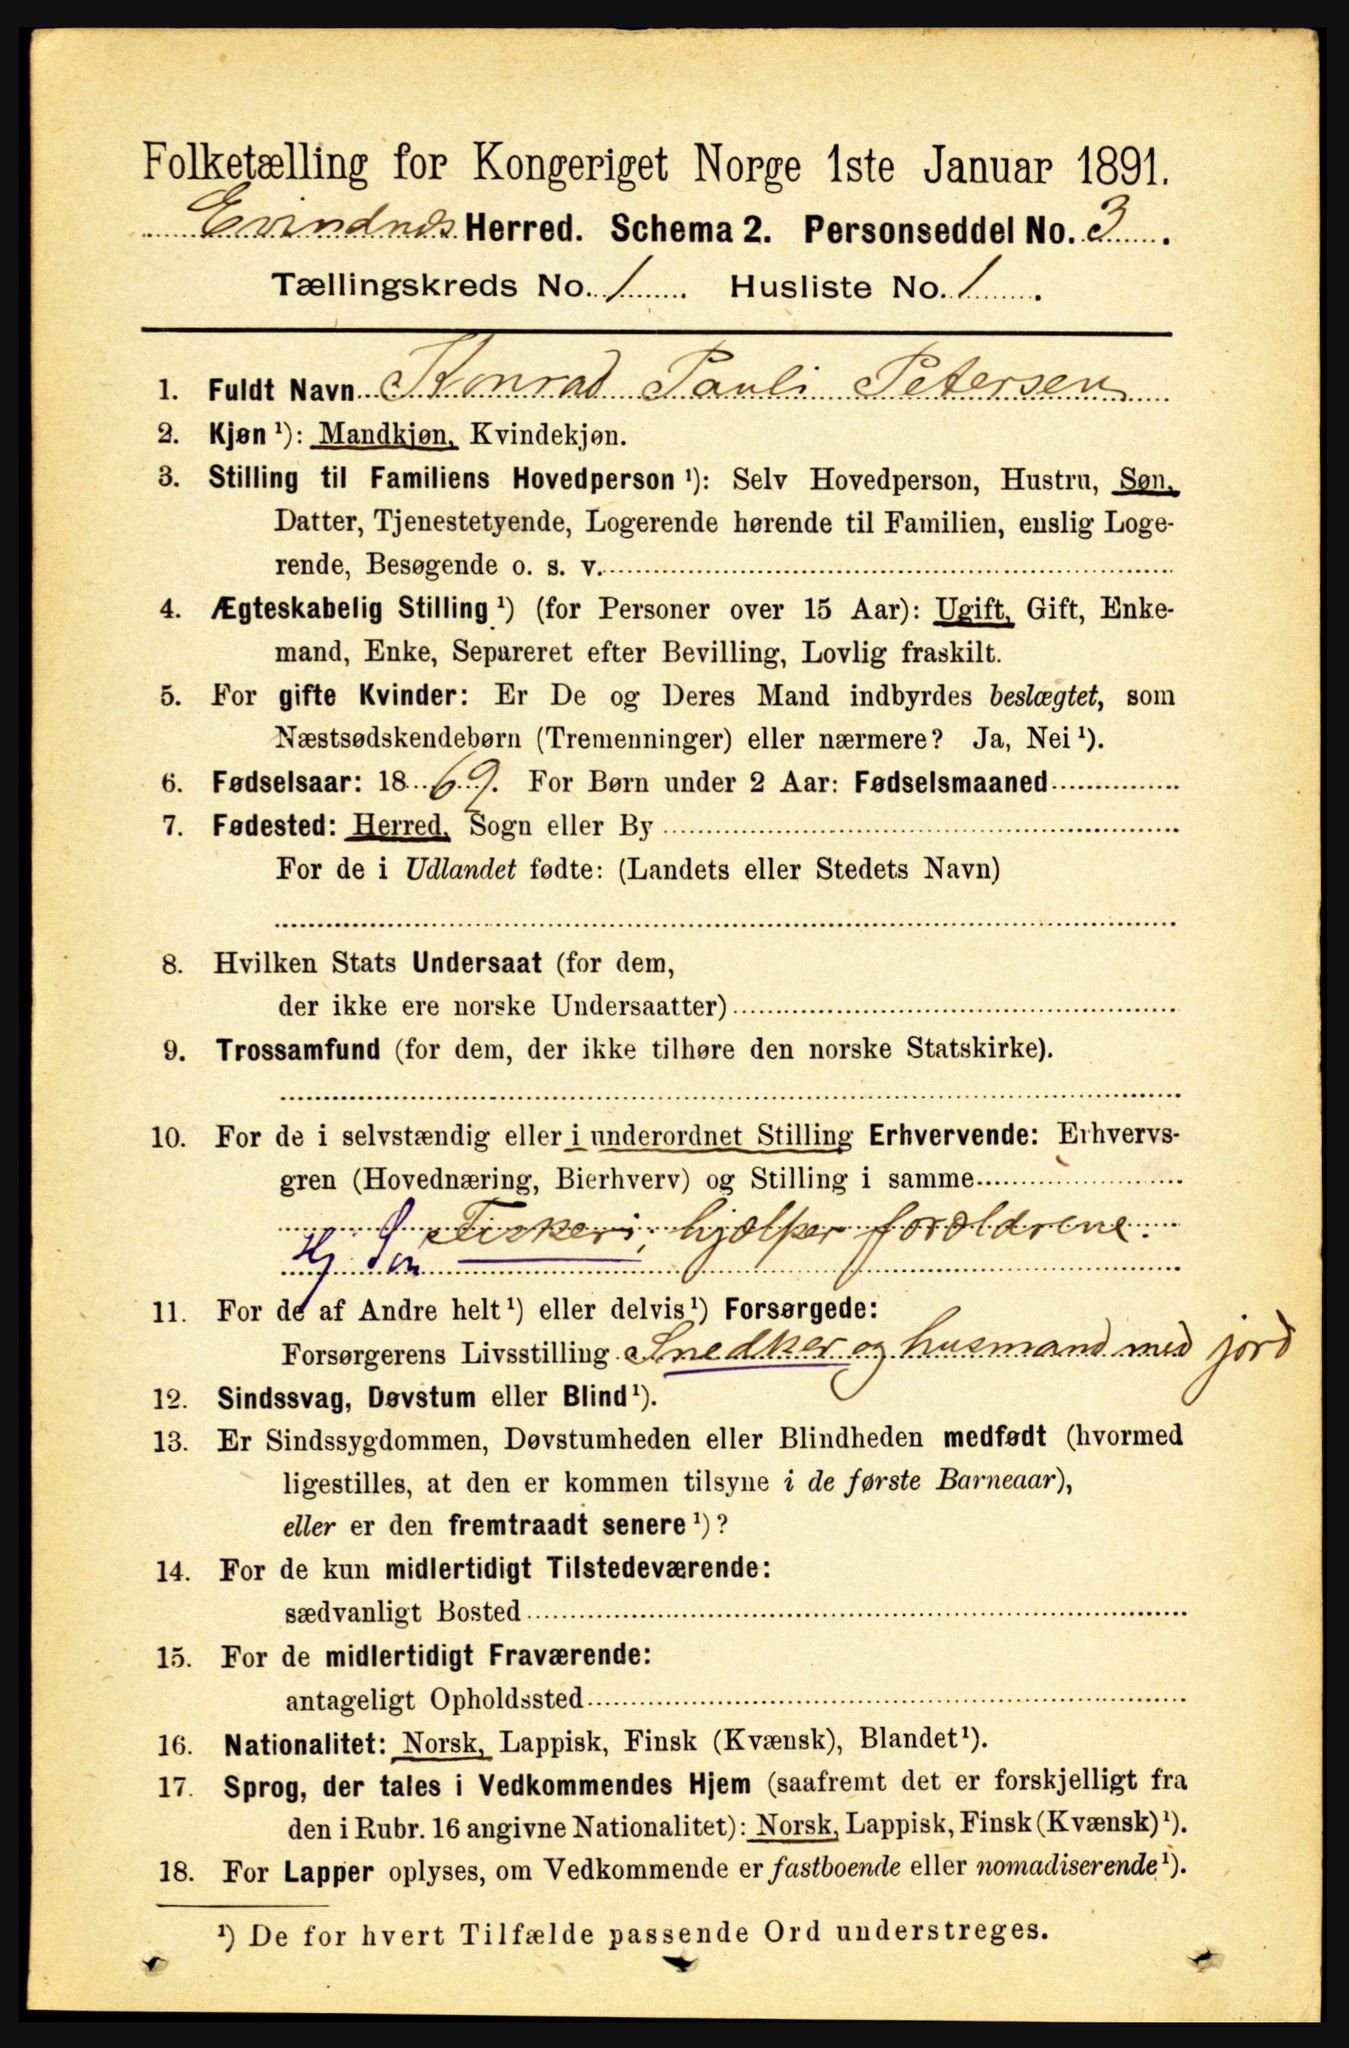 Folketælling for Kongeriget Norge 1ste Januar 1891.
Evindnes Herred. Schema 2. Personseddel No. 3.
Tællingskreds No. 1. Husliste No. 1.
1. Fuldt Navn Konrad Pauli Petersen
2. Kjøn ¹): Mandkjøn, Kvindekjøn.
3. Stilling til Familiens Hovedperson ¹): Selv Hovedperson, Hustru, Søn,
Datter, Tjenestetyende, Logerende hørende til Familien, enslig Loge-
rende, Besøgende o. s. v.
4. Ægteskabelig Stilling ¹) (for Personer over 15 Aar): Ugift, Gift, Enke-
mand, Enke, Separeret efter Bevilling, Lovlig fraskilt.
5. For gifte Kvinder: Er De og Deres Mand indbyrdes beslægtet, som
Næstsødskendebørn (Tremenninger) eller nærmere? Ja, Nei ¹).
6. Fødselsaar: 1869. For Børn under 2 Aar: Fødselsmaaned
7. Fødested: Herred, Sogn eller By
For de i Udlandet fødte: (Landets eller Stedets Navn)
8. Hvilken Stats Undersaat (for dem,
der ikke ere norske Undersaatter)
9. Trossamfund (for dem, der ikke tilhøre den norske Statskirke).
10. For de i selvstændig eller i underordnet Stilling Erhvervende: Erhvervs-
gren (Hovednæring, Bierhverv) og Stilling i samme
Fiskeri, hjælper forældrene.
Hj Søn
11. For de af Andre helt ¹) eller delvis ¹) Forsørgede:
Forsørgerens Livsstilling Snedker og husmand med jord
12. Sindssvag, Døvstum eller Blind ¹).
13. Er Sindssygdommen, Døvstumheden eller Blindheden medfødt (hvormed
ligestilles, at den er kommen tilsyne i de første Barneaar),
eller er den fremtraadt senere ¹)?
14. For de kun midlertidigt Tilstedeværende:
sædvanligt Bosted
15. For de midlertidigt Fraværende:
antageligt Opholdssted
16. Nationalitet: Norsk, Lappisk, Finsk (Kvænsk), Blandet ¹).
17. Sprog, der tales i Vedkommendes Hjem (saafremt det er forskjelligt fra
den i Rubr. 16 angivne Nationalitet): Norsk, Lappisk, Finsk (Kvænsk) ¹).
18. For Lapper oplyses, om Vedkommende er fastboende eller nomadiserende ¹).
¹) De for hvert Tilfælde passende Ord understreges.